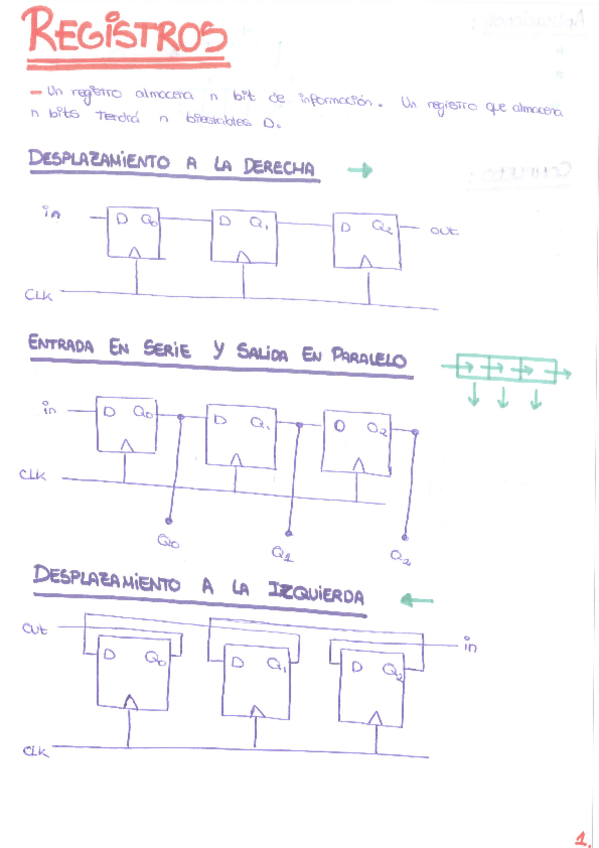 REGISTROS
- Un registro almacena n bit de información. Un registro que almacena
n bits tendrá n biestables D.
DESPLAZAMIENTO A LA DERECHA →
in D Q0 D Q1 D Q2 out
CLK
ENTRADA EN SERIE Y SALIDA EN PARALELO
in D Q0 D Q1 D Q2
CLK
Q0 Q1 Q2
DESPLAZAMIENTO A LA IZQUIERDA ←
out in
D Q0 D Q1 D Q2
CLK
1.